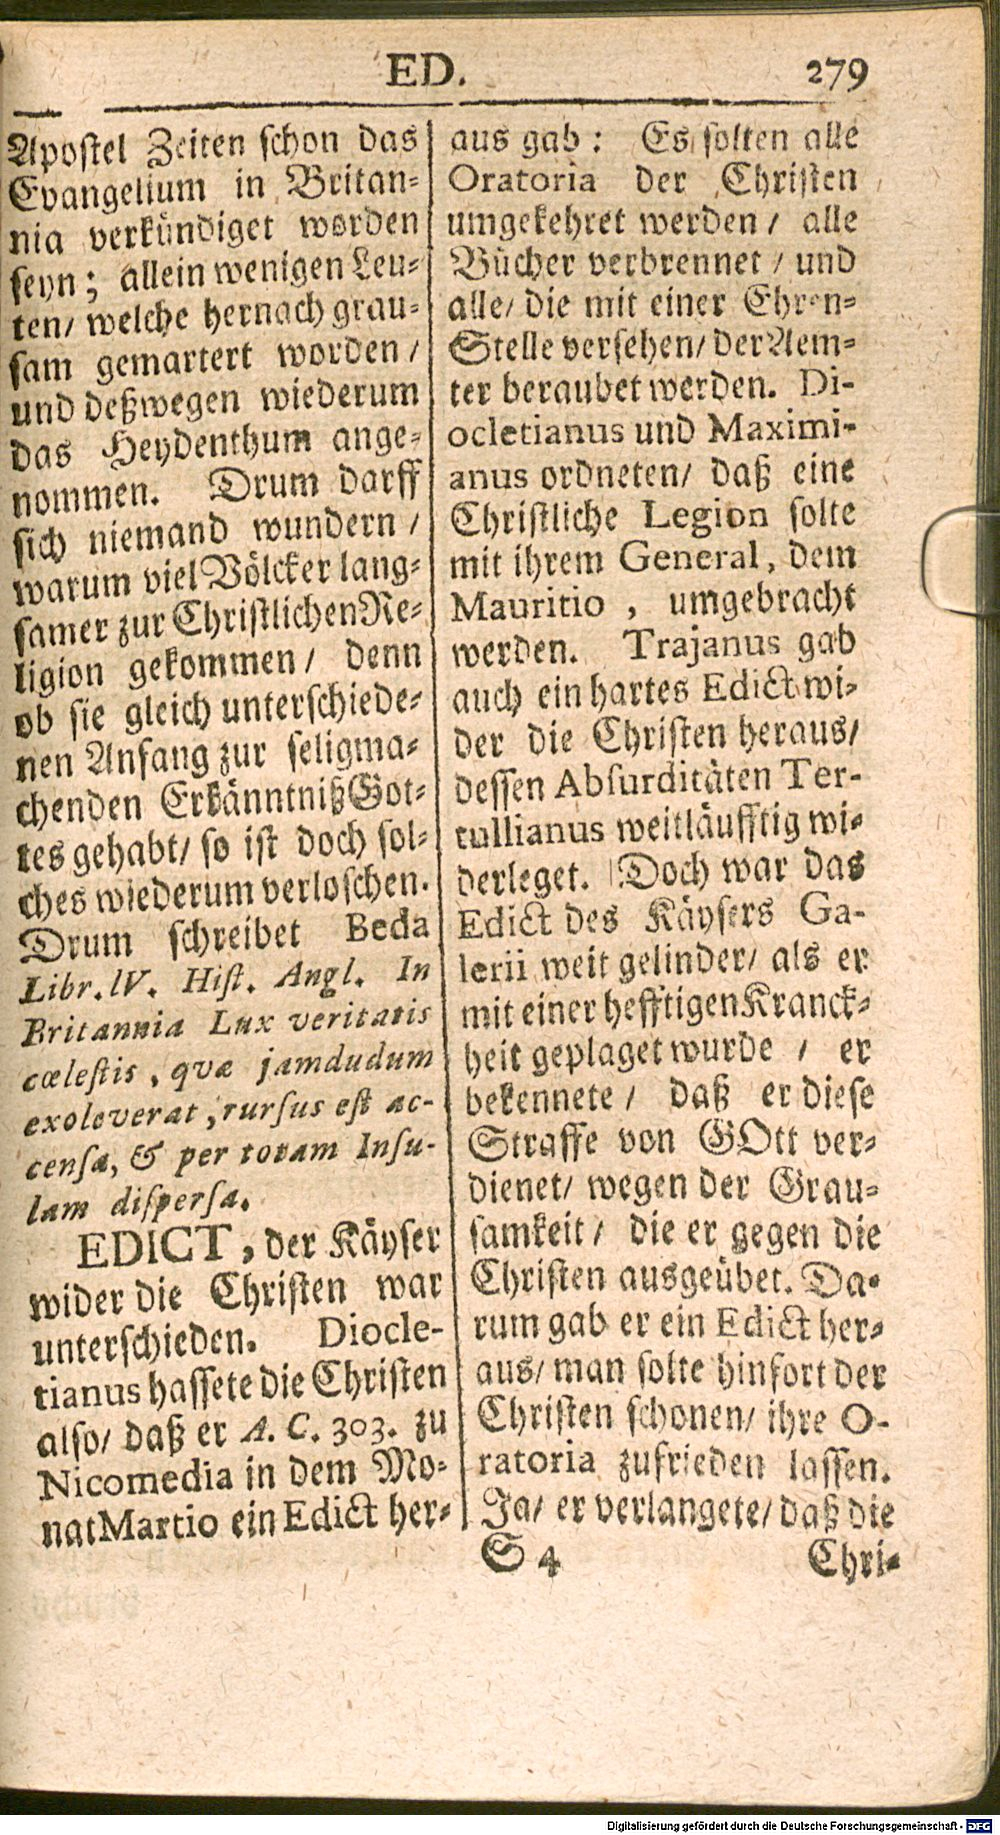 ED. 279
Apostel Zeiten schon das
Evangelium in Britan-
nia verkündiget worden
seyn; allein wenigen Leu-
ten/ welche hernach grau-
sam gemartert worden/
und deßwegen wiederum
das Heydenthum ange-
nommen. Drum darff
sich niemand wundern/
warum viel Völcker lang-
samer zur Christlichen Re-
ligion gekommen/ denn
ob sie gleich unterschiede-
nen Anfang zur seligma-
chenden Erkänntniß Got-
tes gehabt/ so ist doch sol-
ches wiederum verloschen.
Drum schreibet Beda
Libr. lV. Hist. Angl. In
Britannia Lux veritatis
cœlestis, qvæ jamdudum
exoleverat, rursus est ac-
censa, & per totam Insu-
lam dispersa.
EDICT, der Käyser
wider die Christen war
unterschieden. Diocle-
tianus hassete die Christen
also/ daß er A. C. 303. zu
Nicomedia in dem Mo-
nat Martio ein Edict her-
aus gab: Es solten alle
Oratoria der Christen
umgekehret werden/ alle
Bücher verbrennet/ und
alle/ die mit einer Ehren-
Stelle versehen/ der Aem-
ter beraubet werden. Di-
ocletianus und Maximi-
anus ordneten/ daß eine
Christliche Legion solte
mit ihrem General, dem
Mauritio, umgebracht
werden. Trajanus gab
auch ein hartes Edict wi-
der die Christen heraus/
dessen Absurditäten Ter-
tullianus weitläufftig wi-
derleget. Doch war das
Edict des Käysers Ga-
lerii weit gelinder/ als er
mit einer hefftigen Kranck-
heit geplaget wurde/ er
bekennete/ daß er diese
Straffe von GOtt ver-
dienet/ wegen der Grau-
samkeit/ die er gegen die
Christen ausgeübet. Da-
rum gab er ein Edict her-
aus/ man solte hinfort der
Christen schonen/ ihre O-
ratoria zufrieden lassen.
Ja/ er verlangete/ daß die
S 4 Chri-
Digitalisierung gefördert durch die Deutsche Forschungsgemeinschaft - DFG